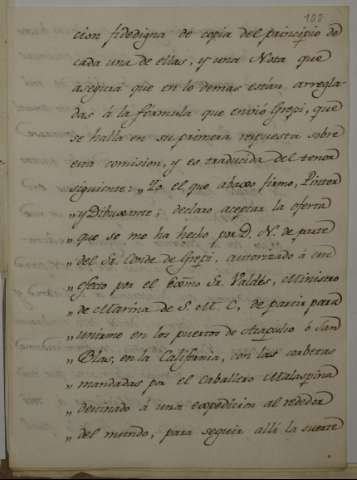 188
cion fidedigna de copia del principio de
cada una de ellas, y una Nota que
asegura que en lo demas estan arregla-
das á la formula que envió Grepi, que
se halla en su primera respuesta sobre
esta comision, y es traducida del tenor
siguiente: „Yo el que abaxo firmo, Pintor
„ y Dibuxante, declaro aceptar la oferta
„ que se me ha hecho por D. N. de parte
„ del Sr. Conde de Grepi, autorizado á este
„ efecto por el Exômo Sr. Valdés, Ministro
„ de Marina de S. M. C., de partir para
„ unirme en los puertos de Acapulco ó San
„ Blas, en la California, con las corbetas
„ mandadas por el Caballero Malaspina
„ destinado á una expedicion al rededor
„ del mundo, para seguir alli la suerte